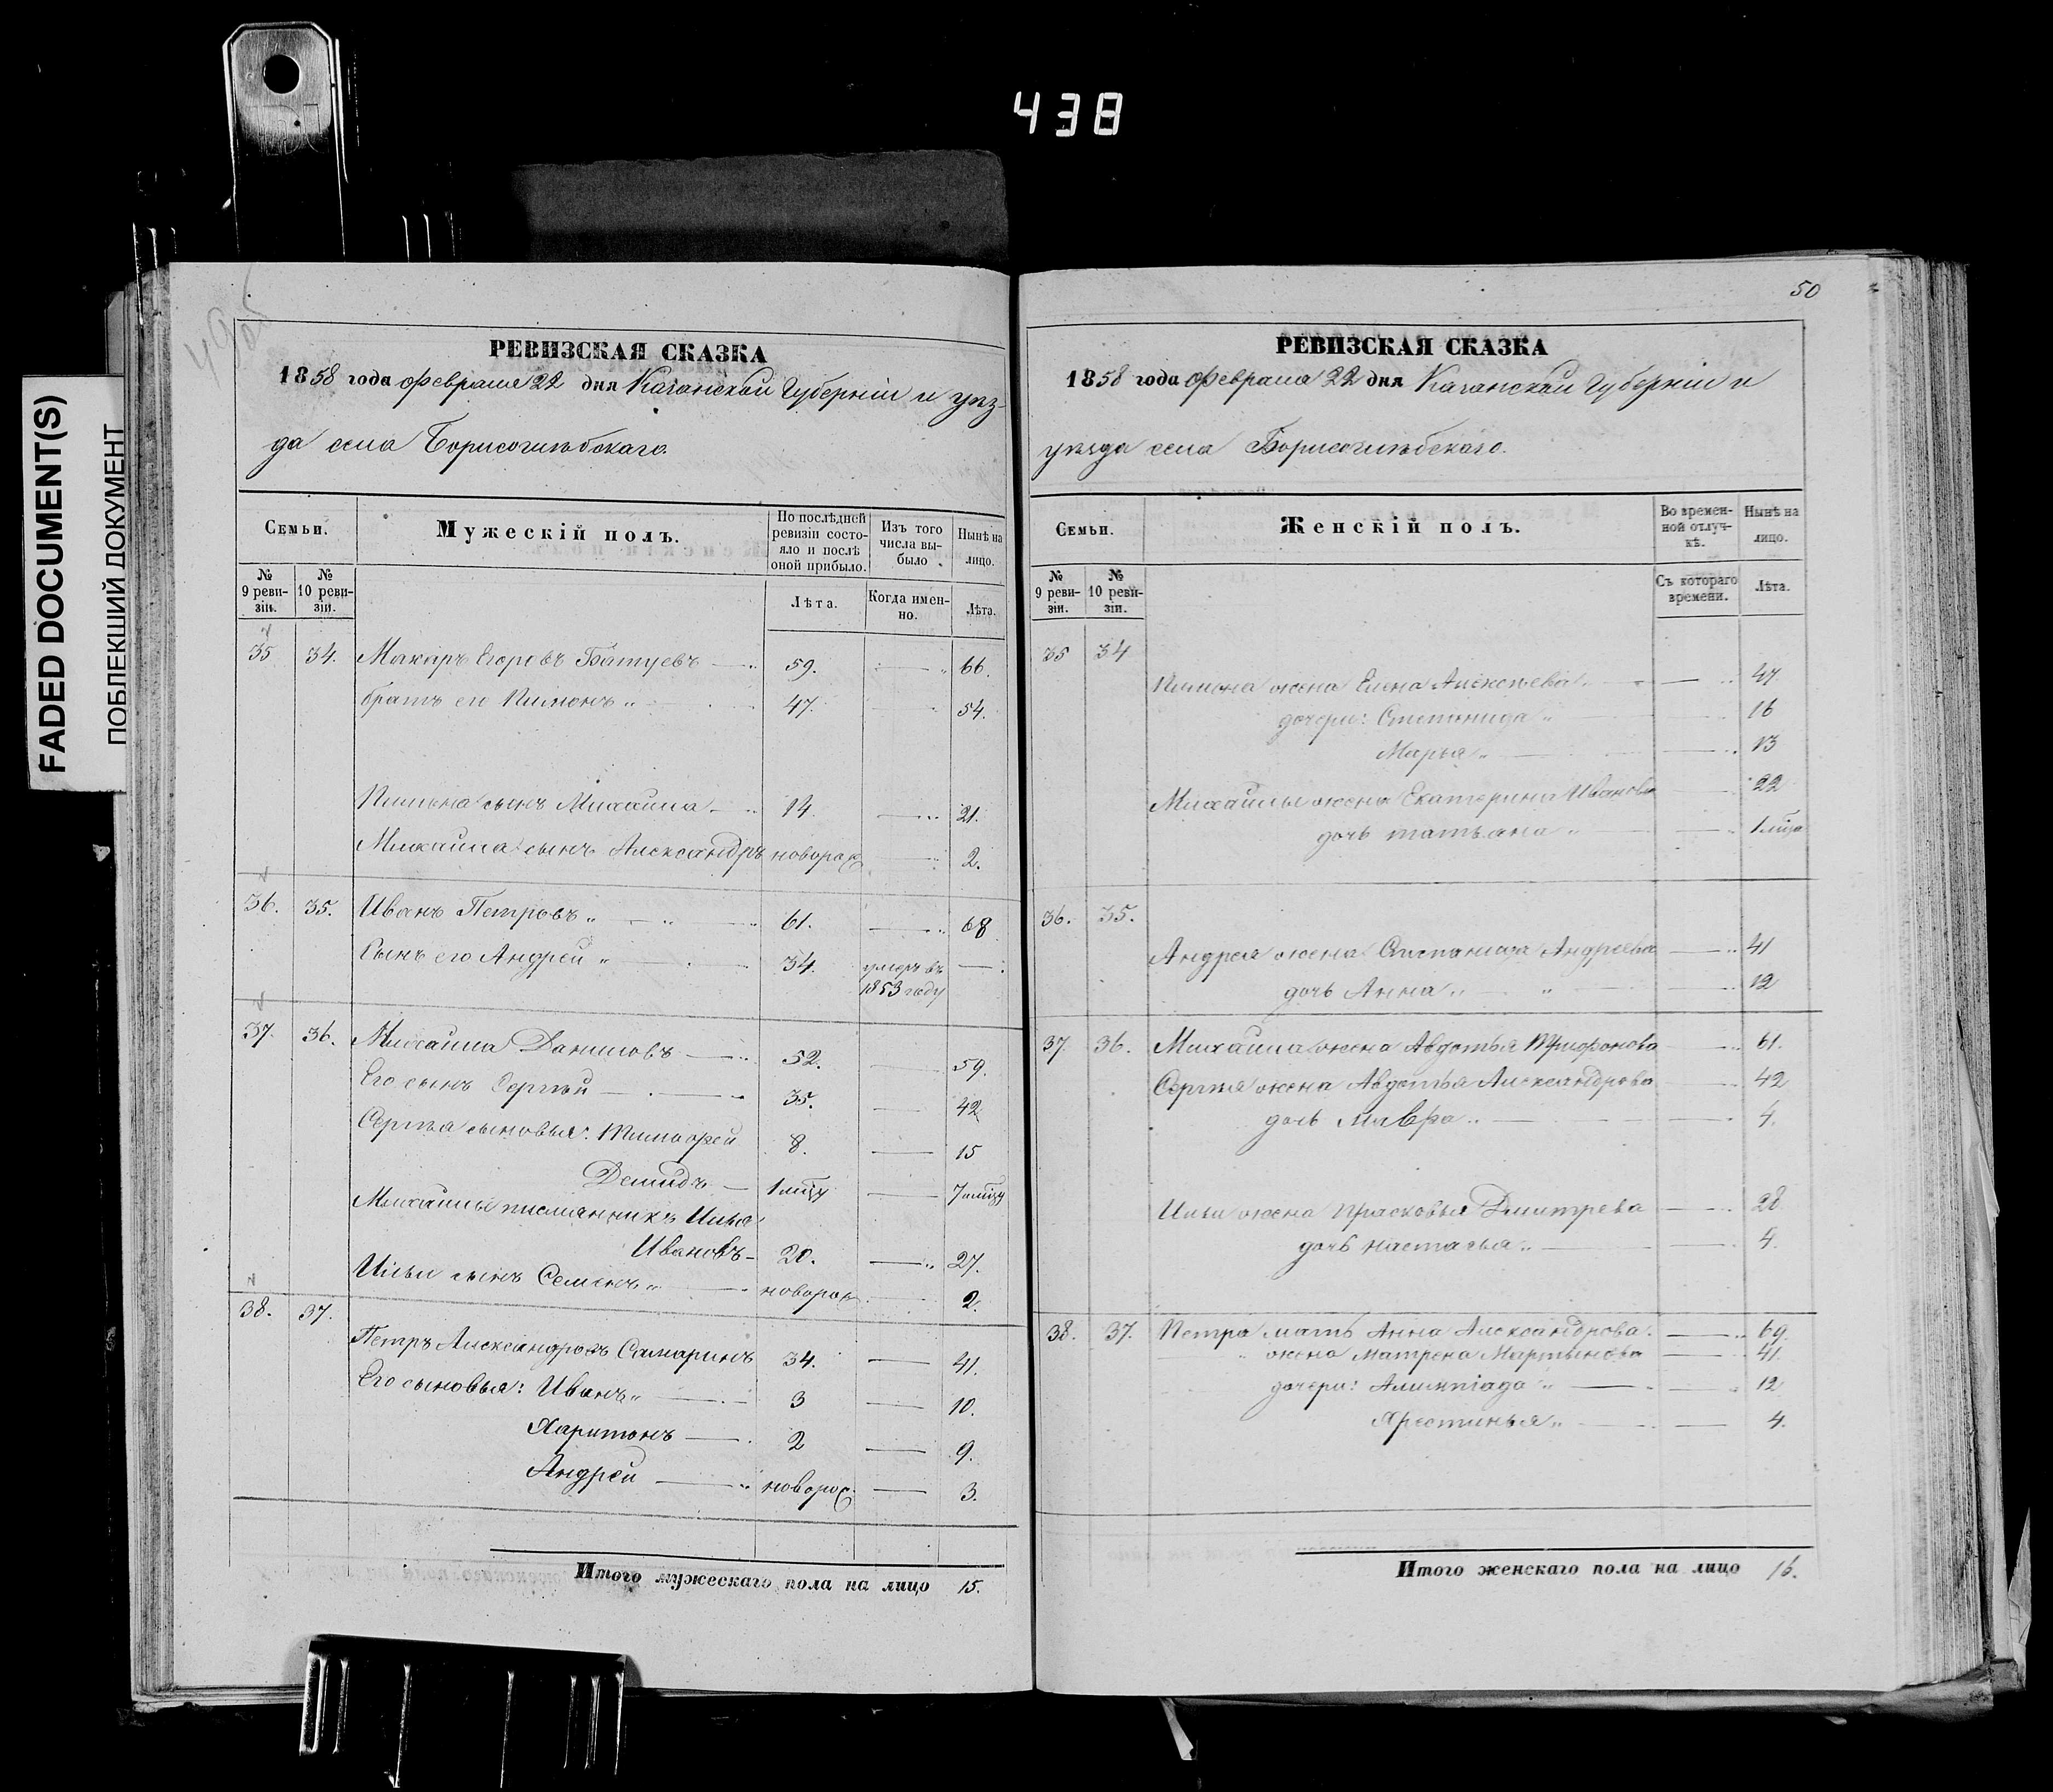 438
FADED DOCUMENT(S)
ПОБЛЕКШИЙ ДОКУМЕНТ
49об
РЕВИЗСКАЯ СКАЗКА
1858 года Февраля 22 дня Казанской Губерніи и уѣз-
да села Борисоглѣбскаго.
Семьи.
Мужескій полъ.
По послѣдней ревизіи состояло и послѣ оной прибыло.
Изъ того числа выбыло
Нынѣ на лицо.
№ 9 ревизіи.
№ 10 ревизіи.
Лѣта.
Когда именно.
Лѣта.
35 34. Макаръ Егоровъ Батуевъ 59. 66.
братъ его Пимонъ 47. 54.
Пимона сынъ Михаила 14. 21.
Михаила сынъ Александръ новорож 2.
36. 35. Иванъ Петровъ 61. 68
Сынъ его Андрей 34. умеръ въ 1853 году
37. 36. Михаила Даниловъ 52. 59.
Его сынъ Сергѣй 35. 42
Сергѣя сыновья: Тимофей 8. 15
Демидъ 1 мѣцу 7 мѣцу
Михайлы племянникъ Илья
Ивановъ 20. 27.
Ильи сынъ Семенъ новорож 2.
38. 37.
Петръ Александровъ Самаринъ 34. 41.
Его сыновья: Иванъ 3 10.
Харитонъ 2 9.
Андрей новорож 3.
Итого мужескаго пола на лицо 15.
50
РЕВИЗСКАЯ СКАЗКА
1858 года Февраля 22 дня Казанской Губерніи и
уѣзда села Борисоглѣбскаго.
Семьи.
Женскій полъ.
Во временной отлучкѣ.
Нынѣ на лицо.
№ 9 ревизіи.
№ 10 ревизіи.
Съ котораго времени.
Лѣта.
35 34
Пимона жена Елена Алексѣева 47
дочери: Степанида 16
Марья 13
Михайлы жена Екатерина Иванова 22
дочь татьяна 1 мѣца
36. 35.
Андрея жена Степанида Андреева 41
дочь Анна 12
37. 36. Михаила жена Авдотья Трифонова 61.
Сергѣя жена Авдотья Александрова 42
дочь Мавра 4.
Ильи жена Прасковья Дмитрева 28
дочь настасья 4.
38. 37. Петра мать Анна Александрова. 69.
жена Матрена Мартынова 41.
дочери: Алимпіада 12
Хрестинья 4.
Итого женскаго пола на лицо 16.